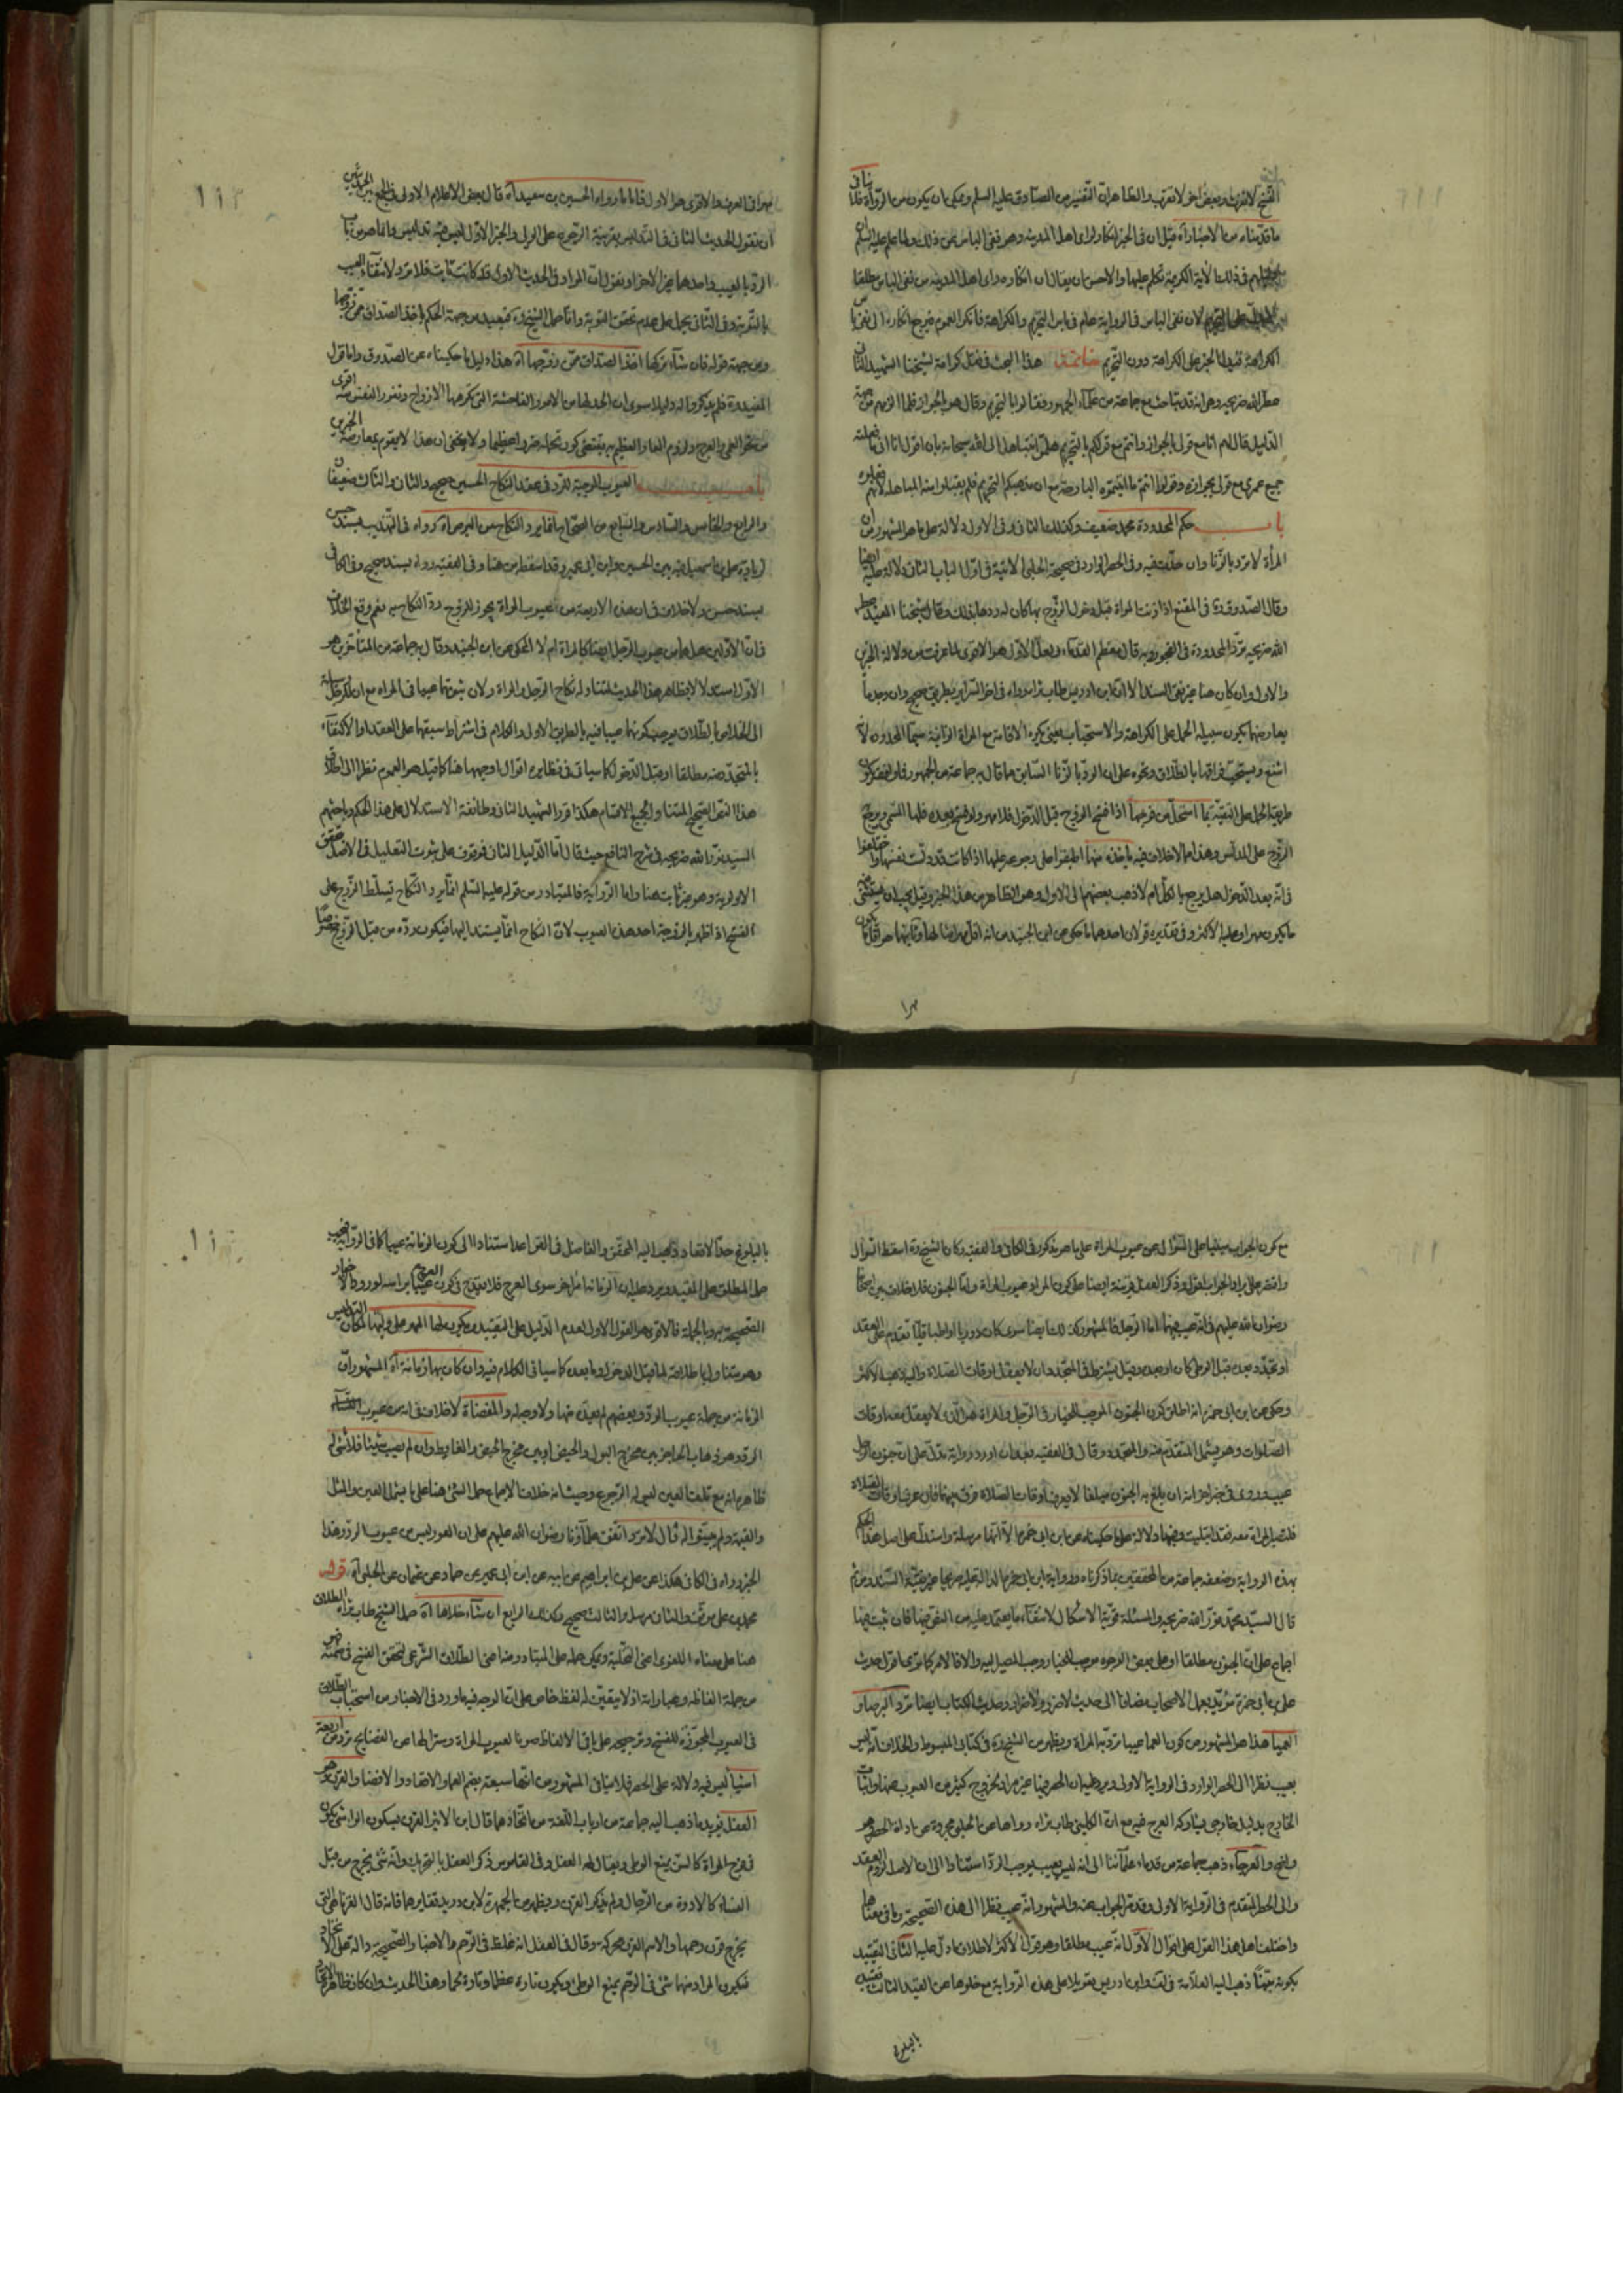 الشيخ لا تقربه وبعض اخر لا تقرب والظاهر ان التفسير من الصادق عليه السلم ويمكن ان يكون من الرواة
ما قدمناه من الاخبار آه قيل ان في الخبر انكارا لراى اهل المدينة وهو نفي الباس عن ذلك
في ذلك الآية الكريمة تكلم عليها والاحسن ان يقال ان انكاره راى اهل المدينة من نفي الباس مطلقا
لان نفي الباس في الرواية عام في باس التحريم والكراهة فانكر العموم فيرجع انكاره الى نفي
الكراهة فيدل الخبر على الكراهة دون التحريم خاتمة هذا البحث في نقل كرامة لشيخنا الشهيد الثاني
عطر الله ضريحه وهو انه قد تباحث مع جماعة من علماء الجمهور فقالوا بالتحريم وقال هو بالجواز فلما الزمهم من جهة
الدليل قال لهم انا مع قولي بالجواز وانتم مع قولكم بالتحريم هلموا نتباهل الى الله سبحانه بان اقول انا اني ما فعلته
جميع عمري مع قولي بجوازه وقولوا انتم
باب حكم المحدودة محمد ضعيف وكذلك الثاني وفي الاول دلالة على ما هو المشهور من ان
المرأة لا ترد بالزنا وان حدت فيه وفي الحصر الوارد في صحيحة الحلبي الاتية في اول الباب الثاني دلالة عليه ايضا
وقال الصدوق ره في المقنع اذا زنت المراة قبل دخول الزوج بها كان له ردها بذلك وقال شيخنا المفيد عطر
الله ضريحه ترد المحدودة في الفجور وبه قال معظم القدماء ولعل الاول هو الاقوى لما عرفت من دلالة الخبرين
والاول وان كان هنا غير نقي السند الا ان ابن ادريس طاب ثراه رواه في اخر السراير بطريق صحيح وان وجد ما
يعارضهما يكون سبيله الحمل على الكراهة والاستحباب بمعنى يكره الاقامة مع المراة الزانية سيما المحدودة لانه
اشنع ويستحب فراقها بالطلاق ونحوه على ان الرد بالزنا السابق مما قال به جماعة من الجمهور
طريقة الحمل على التقية بما استحل من فرجها اذا فسخ الزوج قبل الدخول فلا مهر ولو فسخ بعده فلها المسمى ويرجع
الزوج على المدلس وهذا مما لا خلاف فيه ياخذه منها اطبقوا على رجوعه عليها اذا كانت قد دلست نفسها واختلفوا
في انه بعد الدخول هل يرجع بالكل ام لا فذهب بعضهم الى الاول وهو الظاهر من هذا الخبر وقيل يجب ان يستثنى منه
ما يكون مهرا وعليه الاكثر وفي تقديره قولان احدهما ما حكي عن ابن الجنيد من انه اقل مهر امثالها وثانيهما هو اقل ما يكون
مهرا
مهرا في العرف والاقوى هو الاول فاما ما رواه الحسين بن سعيد آه قال بعض الاعلام الاولى في الجمع بين الحديثين
ان نقول الحديث الثاني في التدليس بقرينة الرجوع على الولي والخبر الاول ليس فيه تدليس وانما هو من باب
الرد بالعيب واحدهما غير الاخر او نقول ان المراد في الحديث الاول قد كانت تابت فلا ترد لانتفاء العيب
بالتوبة وفي الثاني يحمل على عدم تحقق التوبة واما حمل الشيخ ره فبعيد من جهة الحكم باخذ الصداق ممن زوجها
ومن جهة قوله فان شاء تركها اخذ الصداق ممن زوجها آه هذا دليل ما حكيناه عن الصدوق واما قول
المفيد ره فلم يذكروا له دليلا سوى ان الحد لها من الامور الفاحشة التي تكرهها الازواج ونفور النفس منه اقوى
من نحو العمى والعرج ولزوم العار العظيم به يقتضي كون تحمله ضررا عظيما ولا يخفى ان هذا لا يقوم بمعارضة الخبرين
باب العيوب الموجبة للرد في عقد النكاح الحسين صحيح والثاني والثالث ضعيفان
والرابع والخامس والسادس والسابع من الصحاح انما يرد النكاح من البرص آه رواه في التهذيب بسند حسن
بزيادة علي بن اسمعيل فيه بين الحسين وابن ابي عمير وقد اسقط من هنا وفي الفقيه رواه بسند صحيح وفي الكافي
بسند حسن ولا خلاف في ان هذه الاربعة من عيوب المراة يجوز للزوج رد النكاح به نعم وقع الخلاف
في ان الاولين هل هما من عيوب الرجل ايضا كالمراة ام لا المحكي عن ابن الجنيد وقال به جماعة من المتأخرين هو
الاول استدلالا بظاهر هذا الحديث لتناوله نكاح الرجل والمراة ولان ثبوتهما عيبا في المراه مع ان للرجل وسيلة
الى الخلاص بالطلاق يوجب كونهما عيبا فيه بالطريق الاولى والكلام في اشتراط سبقهما على العقد او الاكتفاء
بالمتجدد منه مطلقا او قبل الدخول كما سياتي في نظايره اقوال اوجهها هنا كما قيل هو العموم نظرا الى اطلاق
هذا النص الصحيح المتناول لجميع الاقسام هكذا قرر الشهيد الثاني وطائفة الاستدلال على هذا الحكم وباحثهم
السيد نور الله ضريحه في شرح النافع حيث قال اما الدليل الثاني فموقوف على ثبوت التعليل في الاصل وتحقق
الاولوية وهو غير ثابت هنا واما الرواية فالمتبادر من قوله عليه السلم انما يرد النكاح تسلط الزوج على
الفسخ اذا ظهر بالزوجة احد هذه العيوب لان النكاح انما يستند اليها فيكون رده من قبل الزوج خصوصا
مع كون الجواب مبنيا على السؤال عن عيوب المراة على ما هو مذكور في الكافي والفقيه وكان الشيخ ره اسقط السؤال
واقتصر على ايراد الجواب اقول وذكر العفل قرينة ايضا على كون المراد عيوب المراة واما الجنون فلا خلاف بين اصحابنا
رضوان الله عليهم في انه عيب فيها اما الرجل فالمشهور كذلك ايضا سوى كان دوريا او مطبقا تقدم على العقد
او تجدد بعده قبل الوطى كان او بعده وقيل يشترط في المتجدد ان لا يعقل اوقات الصلاة واليه ذهب الاكثر
وحكي عن ابن ابي حمزة انه اطلق كون الجنون الموجب للخيار في الرجل والمراة هو الذي لا يعقل معه اوقات
الصلوات وهو يشمل المتقدم منه والمتجدد وقال في الفقيه بعد ان اورد رواية تدل على ان جنون الرجل
عيب وروى في خبر اخر انه ان بلغ به الجنون مبلغا لا يعرف اوقات الصلاة فرق بينهما فان عرف اوقات الصلاة
فلتصبر المراة معه فقد ابتليت وفيهما دلالة على ما حكيناه عن ابن ابي حمزة الا انها مرسلة واستدل على اصل هذا الحكم
بهذه الرواية وضعفه جماعة من المحققين بما ذكرناه
قال السيد محمد نور الله ضريحه والمسئلة قوية الاشكال لانتفاء ما يعتمد عليه من النص فيها فان ثبت فيها
اجماع على ان الجنون مطلقا او على بعض الوجوه موجب للخيار وجب المصير اليه والا فالامر كما ترى اقول حديث
علي بن ابي حمزة مؤيد بعمل الاصحاب مضافا الى حديث لا ضرر ولا ضرار وحديث الكتاب ايضا ترد البرصاء و
العمياء هذا هو المشهور من كون العما عيبا ترد به المراة ويظهر من الشيخ ره في كتابي المبسوط والخلاف انه ليس
بعيب نظرا الى الحصر الوارد في الرواية الاولى ويرد عليه ان الحصر فيها غير مراد لخروج كثير من العيوب عنها واثبات
الخارج بدليل خارجي يشاركه العرج فيه مع ان الكليني طاب ثراه رواها عن الحلبي مجردة عن اداة الحصر وهو
واضح والعرجاء ذهب جماعة من قدماء علمائنا الى انه ليس بعيب يوجب الرد استنادا الى ان الاصل لزوم العقد
والى الحصر المتقدم في الرواية الاولى وقد مر الجواب عنه والمشهور انه عيب نظرا الى هذه الصحيحة وما في معناها
واختلف اهل هذا القول على اقوال الاول انه عيب مطلقا وهو قول الاكثر لاطلاق ما دل عليه الثاني التقييد
بكونه بينا ذهب اليه العلامة في لف وابن ادريس تعويلا على هذه الرواية مع خلوها عن القيد الثالث تقييده
بالبلوغ
بالبلوغ حد الاقعاد ذهب اليه المحقق والفاضل في القواعد استنادا الى كون الزمانة عيبا كما في الرواية فيجب
حمل المطلق على المقيد ويرد عليه ان الزمانة امر اخر سوى العرج فلا يقدح في كون العرج عيبا براسه لورود الاخبار
الصحيحة به وبالجملة فالاقوى هو القول الاول لعدم الدليل على التقييد ويكون لها المهر على وليها لمكان التدليس
وهو يتناول باطلاقه لما قبل الدخول وما بعده كما سياتي الكلام فيه وان كان بها زمانة آه المشهور ان
الزمانة من جملة عيوب الرد وبعضهم لم يعده منها ولا وجه له والمفضاة لا خلاف في انه من عيوب النساء
الرد وهو ذهاب الحاجز بين مخرج البول والحيض او بين مخرج الحيض والغايط وان لم يصب شيئا فلا شئ له
ظاهره انه مع تلف العين ليس له الرجوع وحيث انه خلاف الاجماع حمل الشئ هنا على ما يشمل العين والمثل
والقيمة ولم يبينوا له قال لا ترد اتفق علماؤنا رضوان الله عليهم على ان العور ليس من عيوب الرد وهذا
الخبر رواه في الكافي هكذا عن علي بن ابراهيم عن ابيه عن ابن ابي عمير عن حماد عن عثمان عن الحلبي آه قوله
محمد بن علي موثق والثاني مرسل والثالث صحيح وكذلك الرابع ان شاء خلاها آه حمل الشيخ طاب ثراه الطلاق
هنا على معناه اللغوى اعنى التخلية ويمكن حمله على المتبادر منه اعنى الطلاق الشرعي لتحقق الفسخ في ضمنه فهو
من جملة الفاظه وعباراته اذ لا يتعين له لفظ خاص على ان الوجه فيه ما ورد في الاخبار من استحباب الطلاق
في العيوب المجوزة للفسخ وترجيحه على باقي الالفاظ صونا لعيوب المراة وسترا لها عن الفضايح ترد من اربعة
اشياء ليس فيه دلالة على الحصر فلا ينافي المشهور من انها سبعة بضم العما والاقعاد والافضا والقرن وهو
العفل يؤيد ما ذهب اليه جماعة من ارباب اللغة من اتحادهما قال ابن الاثير القرن بسكون الراء شئ يكون
في فرج المراة كالسن يمنع الوطى ويقال له العفل وفي القاموس ذكر العفل بالتحريك وانه شئ يخرج من قبل
النساء كالادرة من الرجال ولم يذكر القرن ويظهر من الجمهرة لابن دريد تغايرهما فانه قال القرناء هي التي
يخرج قرن رحمها والاسم القرن محركة وقال في العفل انه غلظ في الرحم والاخبار الصحيحة دالة على الاتحاد
فيكون المراد منهما شئ في الرحم يمنع الوطى ويكون تارة عظما وتارة لحما وهذا الحديث وان كان ظاهره الاتحاد